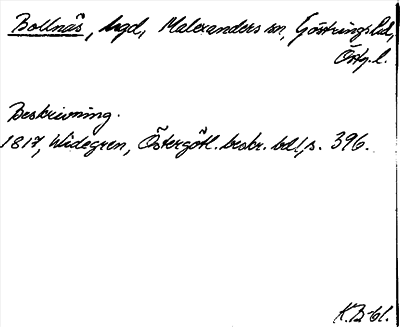 Bollnäs, bygd, Malexanders sn, Göstrings hd,
Östg. l.
Beskrivning.
1817, Widegren, Östergötl. beskr. bd 1, s. 396.
K.B-bl.